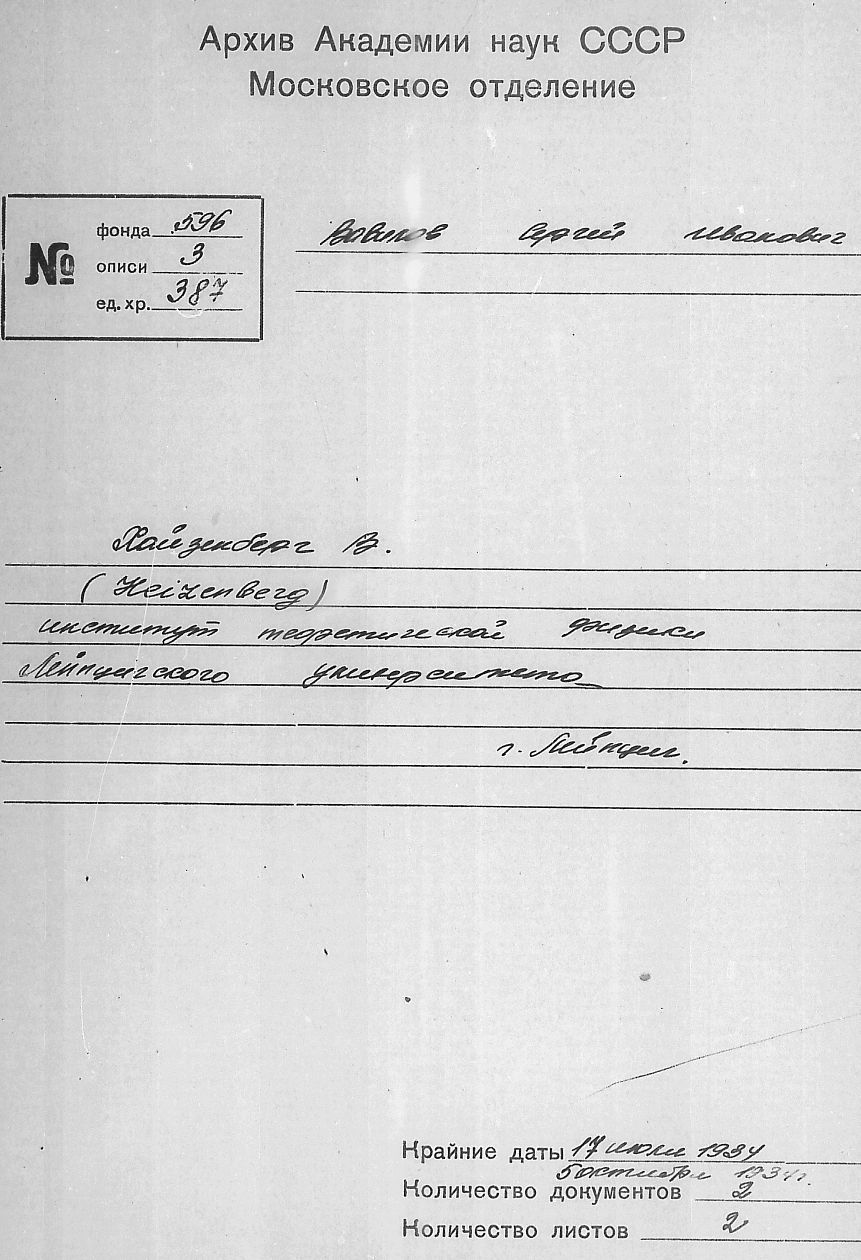 Архив Академии наук СССР
Московское отделение
№
фонда 596
описи 3
ед. хр. 387
Вавилов Сергей Иванович
Хайзенберг В.
(Heizenberg)
институт теоретической физики
Лейпцигского университета
г. Лейпциг.
Крайние даты 17 июля 1934
5 октября 1934 г.
Количество документов 2
Количество листов 2